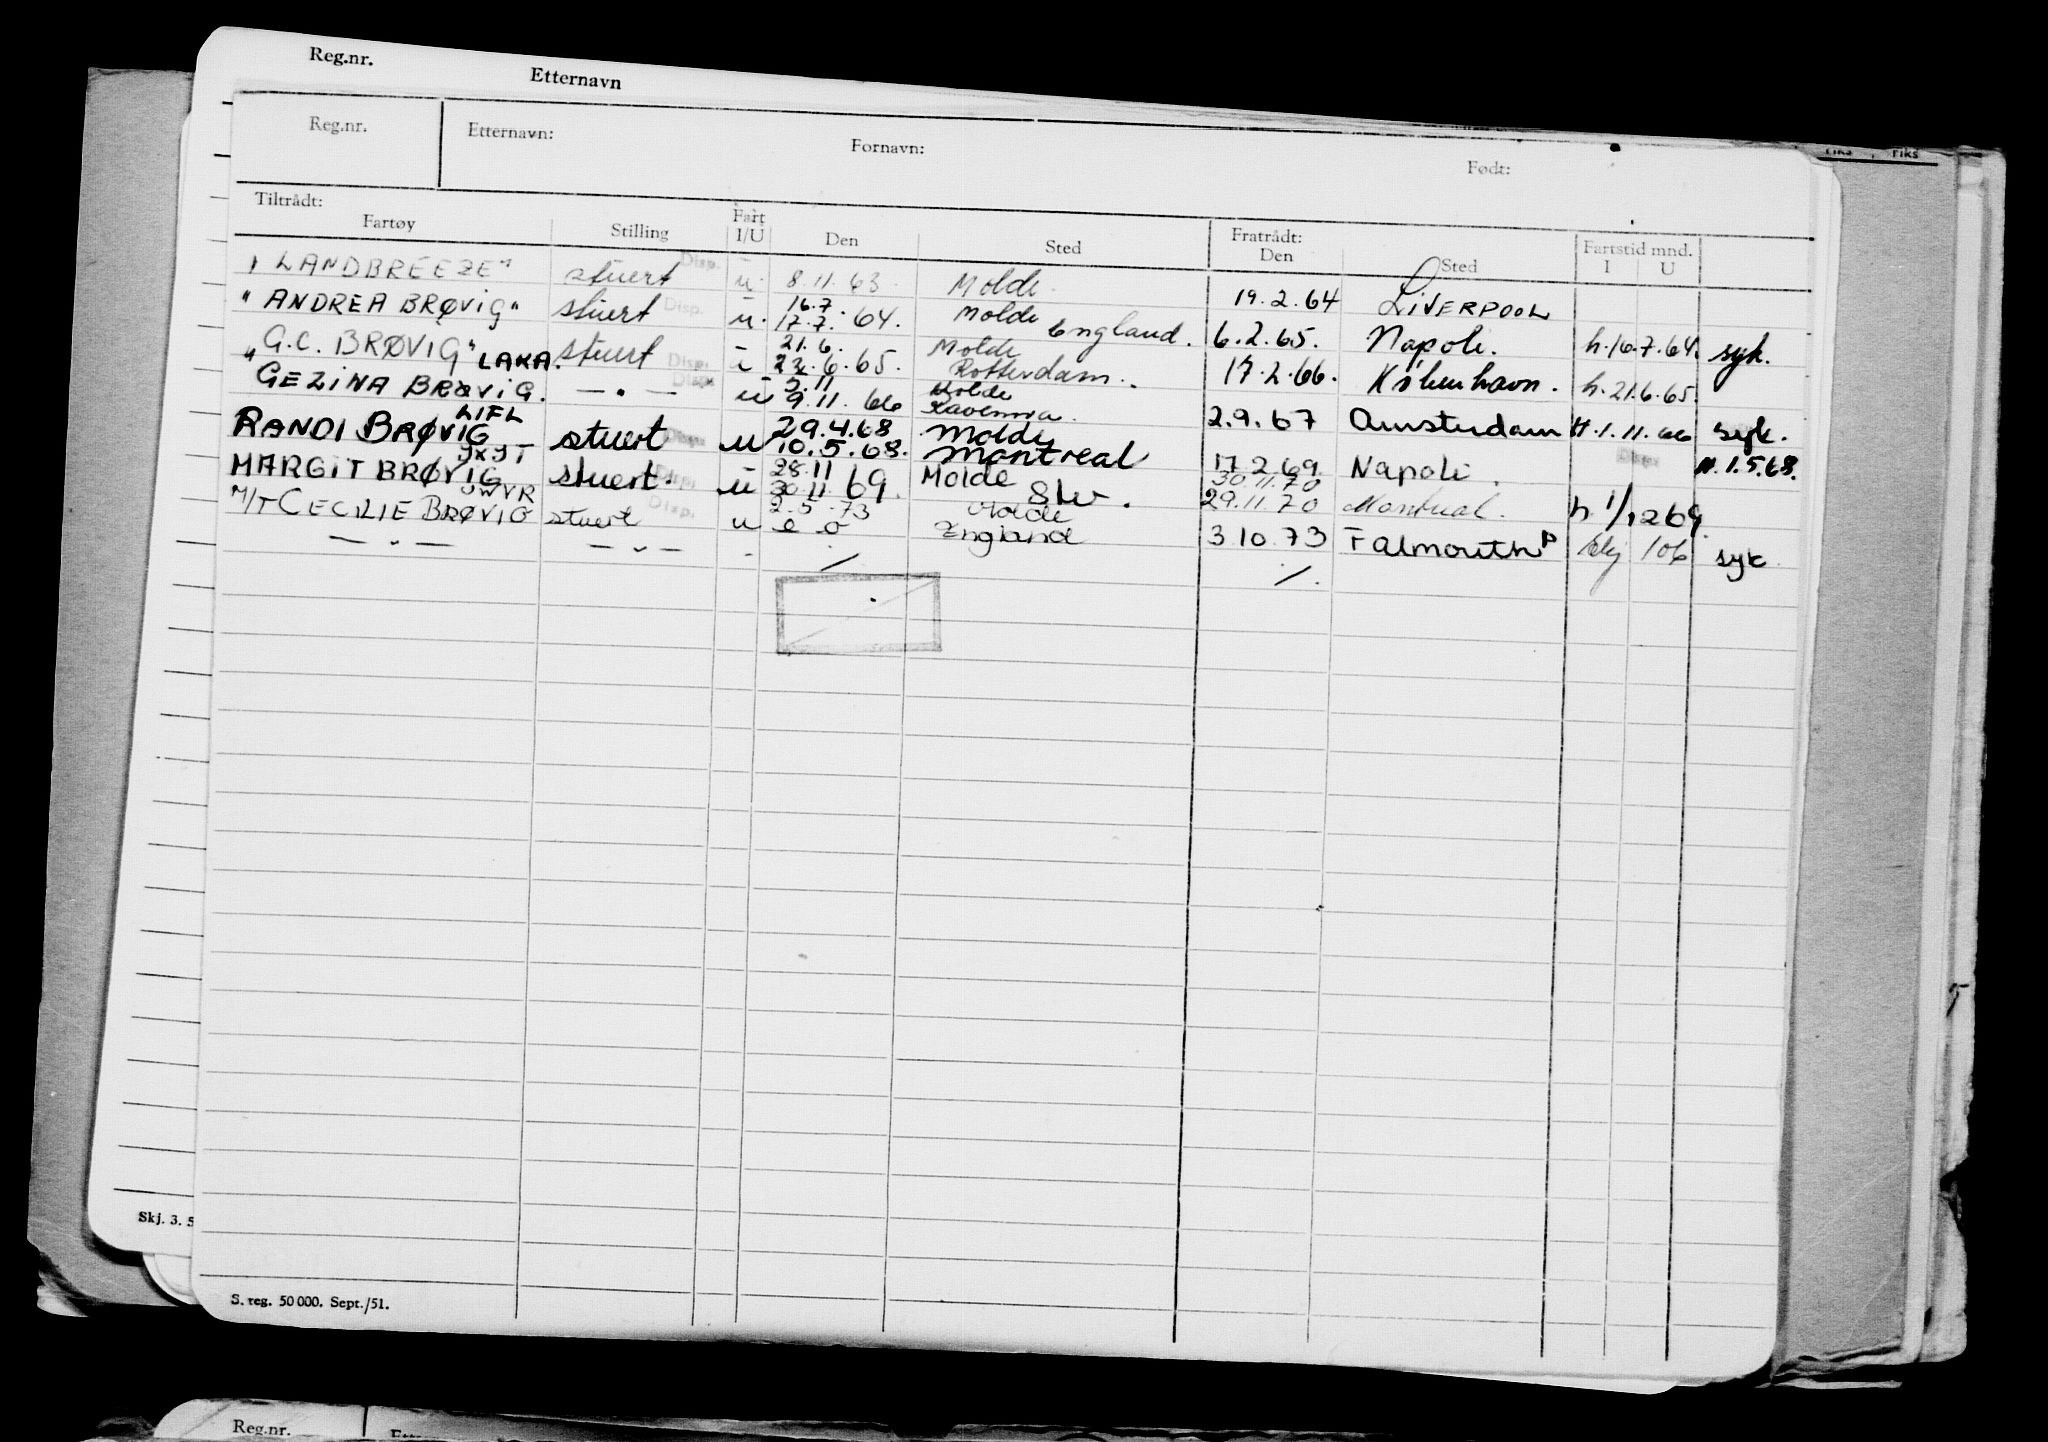 Reg.nr. Etternavn
Fiks Fiks
Reg.nr. Etternavn: Fornavn: Født:
Tiltrådt: Fratrådt:
Fartøy Stilling Fart I/U Den Sted Den Sted Fartstid mnd. I U
"LANDBREEZE" stuert Disp. u 8.11.63. Molde. 19.2.64 LIVERPOOL
"ANDREA BRØVIG" stuert Disp. u. 16.7. 17.7. 64. Molde England. 6.2.65. Napoli. h.16.7.64. syk.
"G.C. BRØVIG" LAKA. stuert Disp. u 21.6. 22.6.65. Molde Rotterdam. 17.2.66. København. h.21.6.65.
GEZINA BRØVIG. — " — Disp. u 5.11 9.11. 66 Molde Ravenna. 2.9.67 Amsterdam H.1.11.66 syk.
LIFL
RANDI BRØVIG stuert Disp. u 29.4.68 10.5.68. Molde Montreal 17.2.69. Napoli. Disp. H.1.5.68.
JXJT
MARGIT BRØVIG stuert. Disp. u 28.11 30.11 69. Molde 30.11.70 29.11.70 Montreal. h. 1/12 69.
M/T CECILIE BRØVIG stuert Disp. u 2.5.73 Molde England 3 10.73 Falmouth 106 syk
— " — — " — - / /.
Skj. 3. 5
S. reg. 50 000. Sept./51.
Reg.nr.